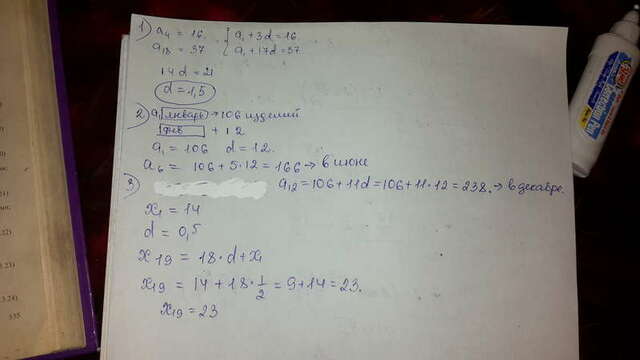 1) a₄ = 16. { a₁ + 3d = 16
a₁₈ = 37 { a₁ + 17d = 37
14d = 21
d = 1,5
2) a₁ январь → 106 изделий
фев + 12
a₁ = 106 d = 12.
a₆ = 106 + 5·12 = 166 → в июне
a₁₂ = 106 + 11d = 106 + 11·12 = 238. → в декабре.
3)
x₁ = 14
d = 0,5
x₁₉ = 18·d + x₁
x₁₉ = 14 + 18·1/2 = 9 + 14 = 23.
x₁₉ = 23
3.23)
3.24)
335